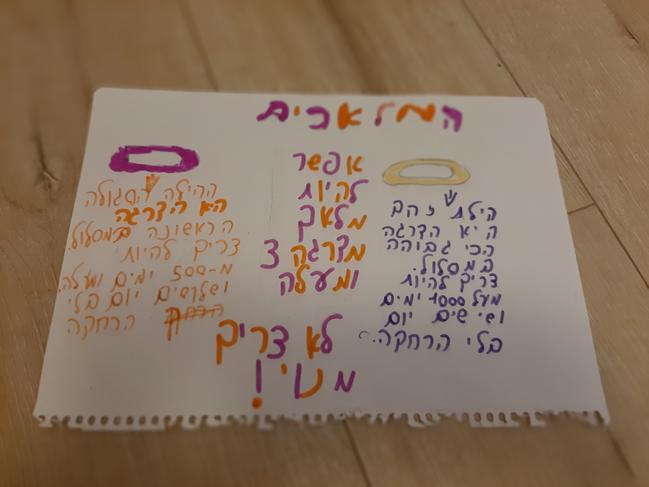 המלאכים
הילת זהב
היא הדרגה
הכי גבוהה
במסלול.
צריך להיות
מעל 1000 ימים
ושישים יום
בלי הרחקה.
אפשר
להיות
מלאך
מדרגה 3
ומעלה
לא צריך
מנוי!
ההילה הסגולה
הא הדרגה
הראשונה במסלול.
צריך להיות
מ-500 ימים ומעלה
ושלושים יום בלי
הרחקה